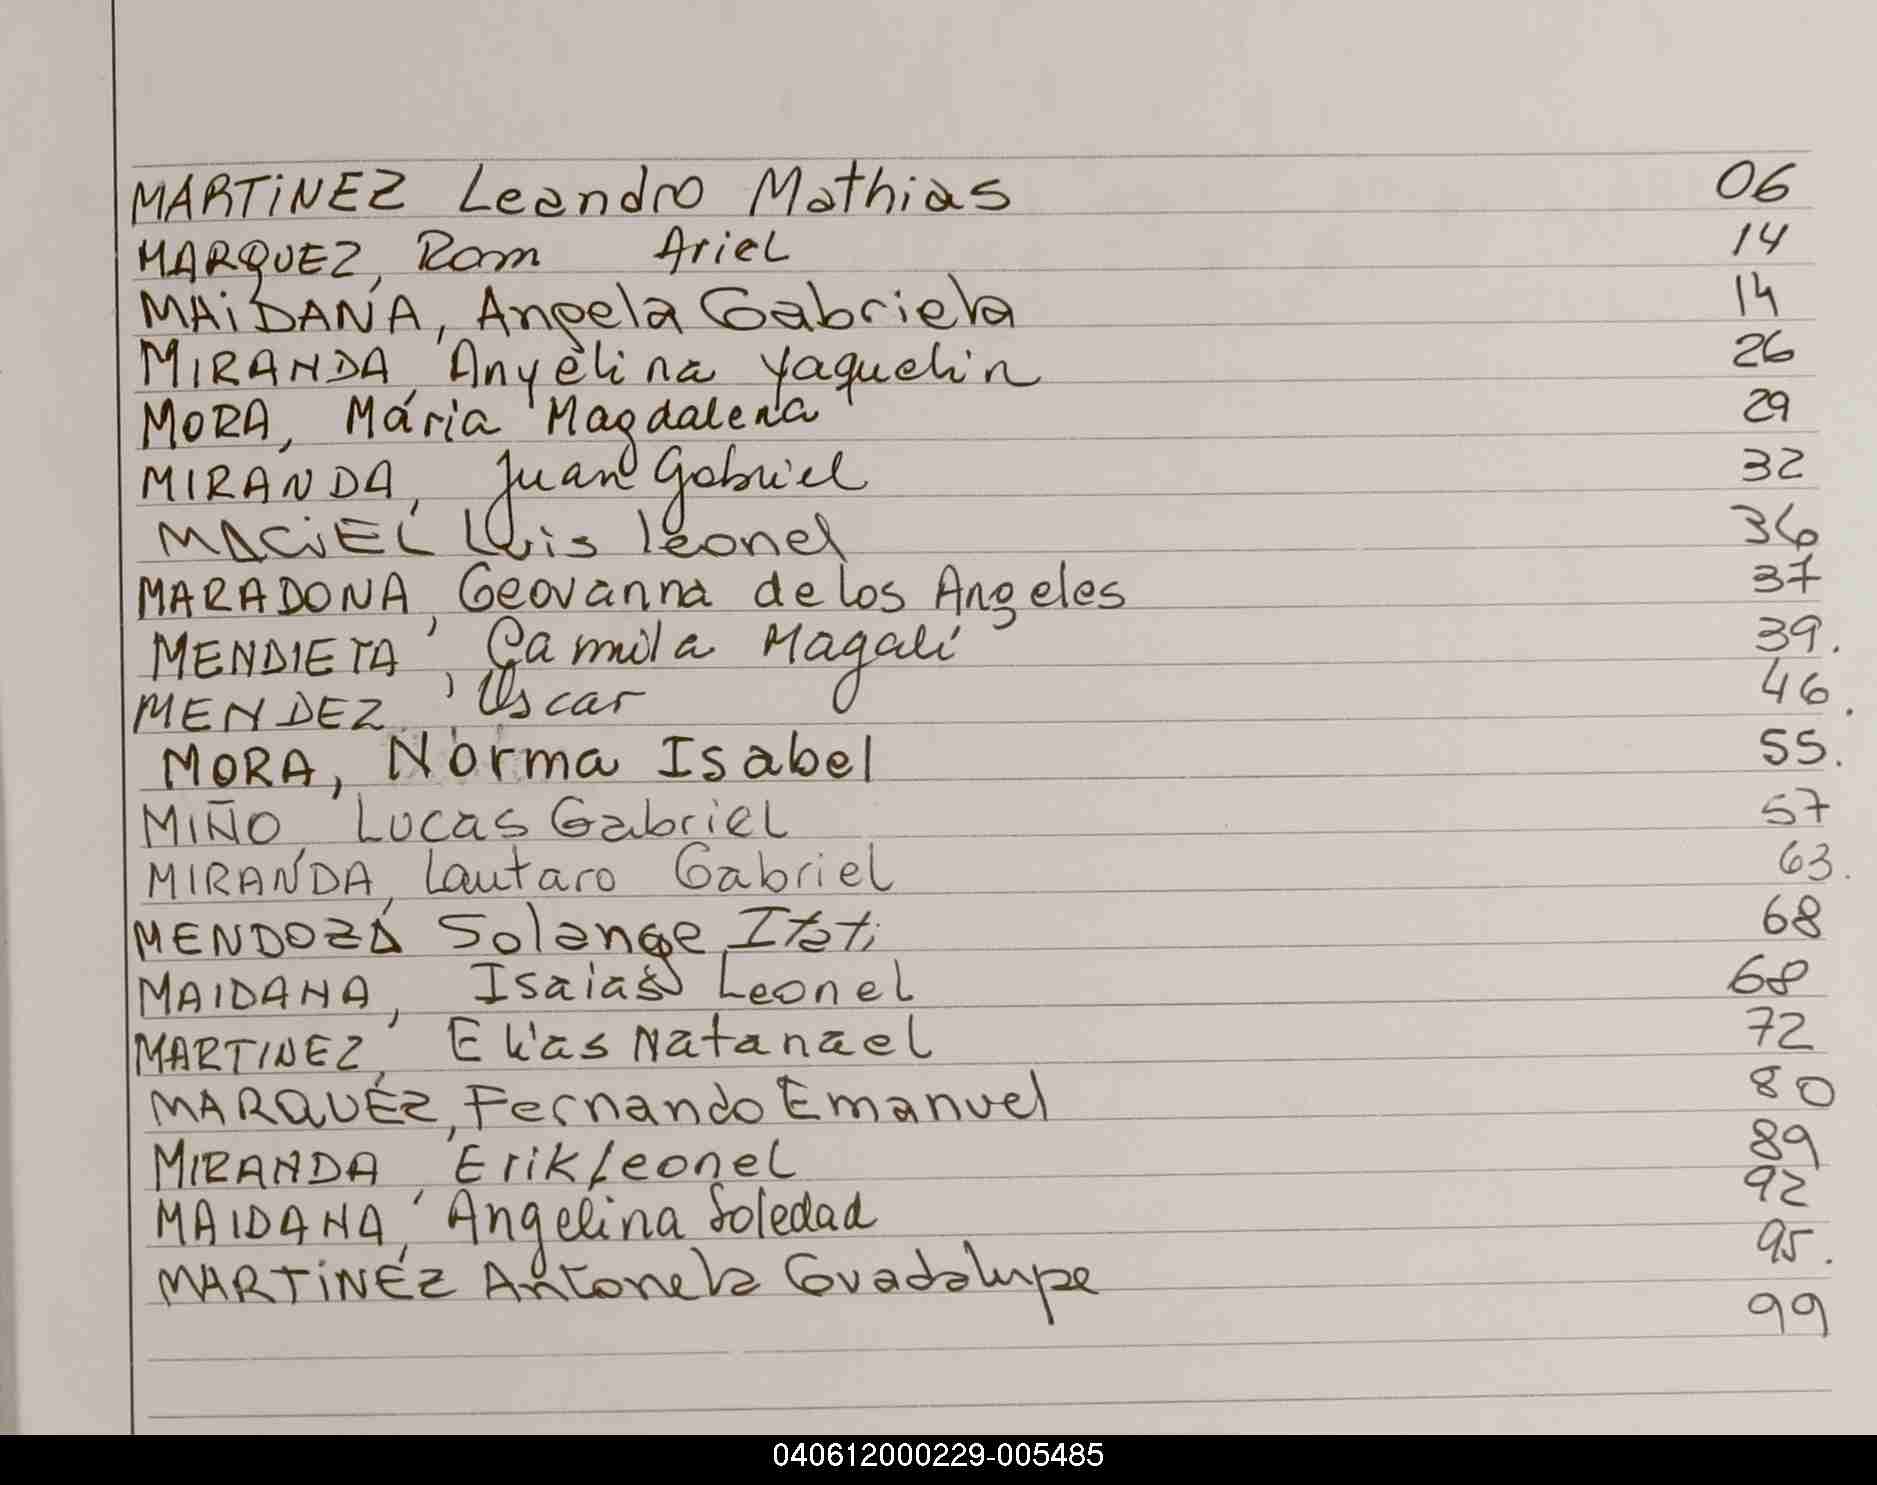 MARTINEZ Leandro Mathias 06
MARQUEZ, Rom Ariel 14
MAIDANA, Angela Gabriela 14
MIRANDA, Anyelina Yaquelin 26
MORA, María Magdalena 29
MIRANDA, Juan Gabriel 32
MACIEL Luis Leonel 36
MARADONA, Geovanna de los Angeles 37
MENDIETA, Camila Magalí 39.
MENDEZ, Oscar 46.
MORA, Norma Isabel 55.
MIÑO, Lucas Gabriel 57
MIRANDA, Lautaro Gabriel 63.
MENDOZA Solange Itati 68
MAIDANA, Isaias Leonel 68
MARTINEZ, Elías Natanael 72
MARQUEZ, Fernando Emanuel 80
MIRANDA, Erik Leonel 89
MAIDANA, Angelina Soledad 92
MARTINEZ Antonela Guadalupe 95.
99
040612000229-005485